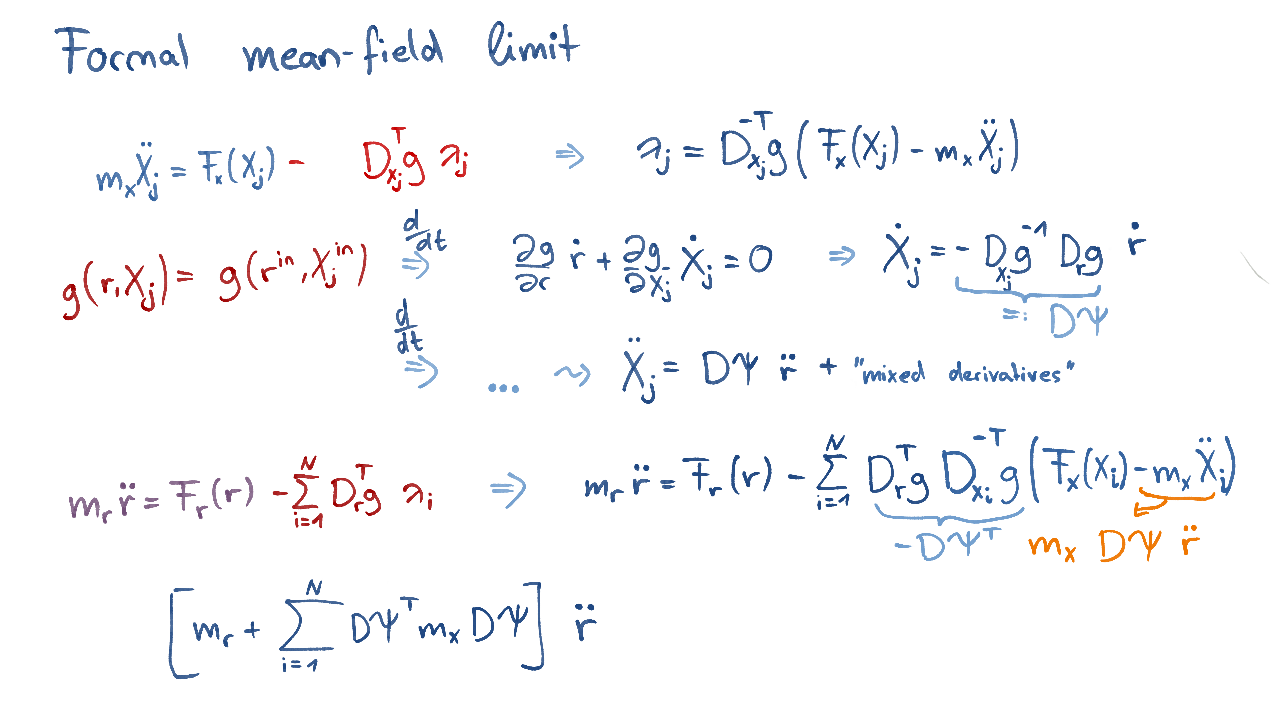 Formal mean-field limit
m_x Ẍ_j = F_x(X_j) - D_{x_j}^T g λ_j ⇒ λ_j = D_{x_j}^{-T} g (F_x(X_j) - m_x Ẍ_j)
g(r, X_j) = g(r^{in}, X_j^{in}) d/dt ⇒ ∂g/∂r ṙ + ∂g/∂X_j Ẋ_j = 0 ⇒ Ẋ_j = - D_{x_j} g^{-1} D_r g ṙ
=: DΨ
d/dt ⇒ ... ⇝ Ẍ_j = DΨ r̈ + "mixed derivatives"
m_r r̈ = F_r(r) - ∑_{i=1}^N D_r^T g λ_i ⇒ m_r r̈ = F_r(r) - ∑_{i=1}^N D_r^T g D_{x_i}^{-T} g (F_x(X_i) - m_x Ẍ_i)
-DΨ^T m_x DΨ r̈
[m_r + ∑_{i=1}^N DΨ^T m_x DΨ] r̈